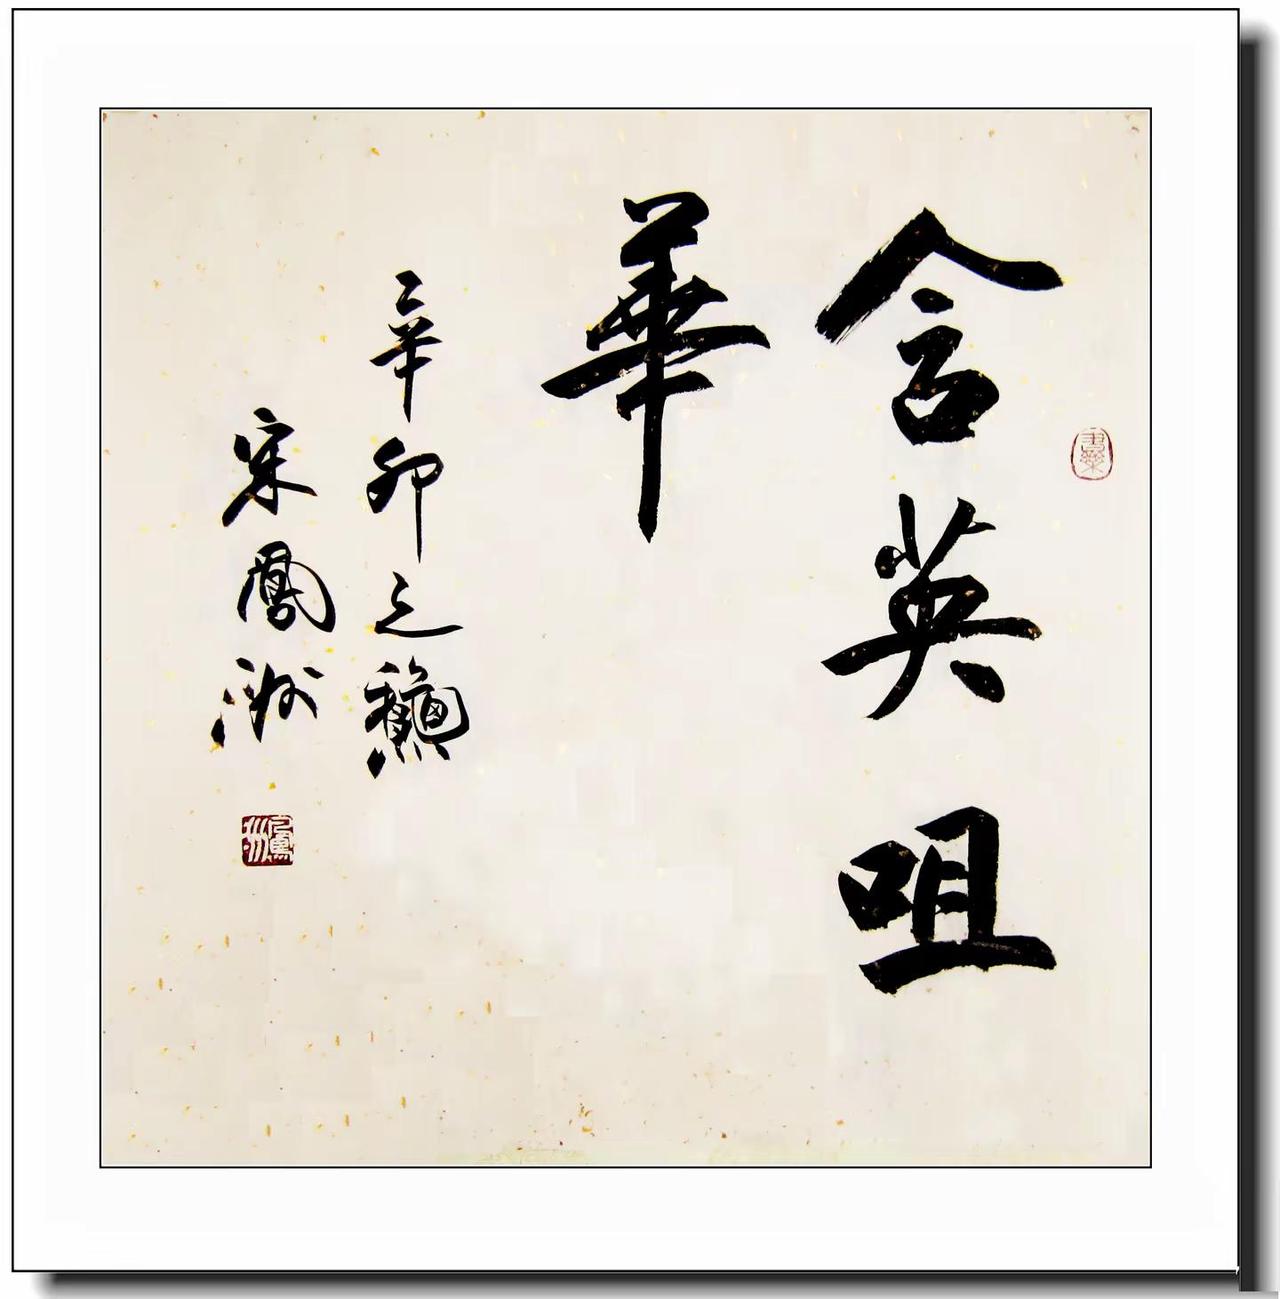 含英咀
華
辛卯之龝
宋鳳洲